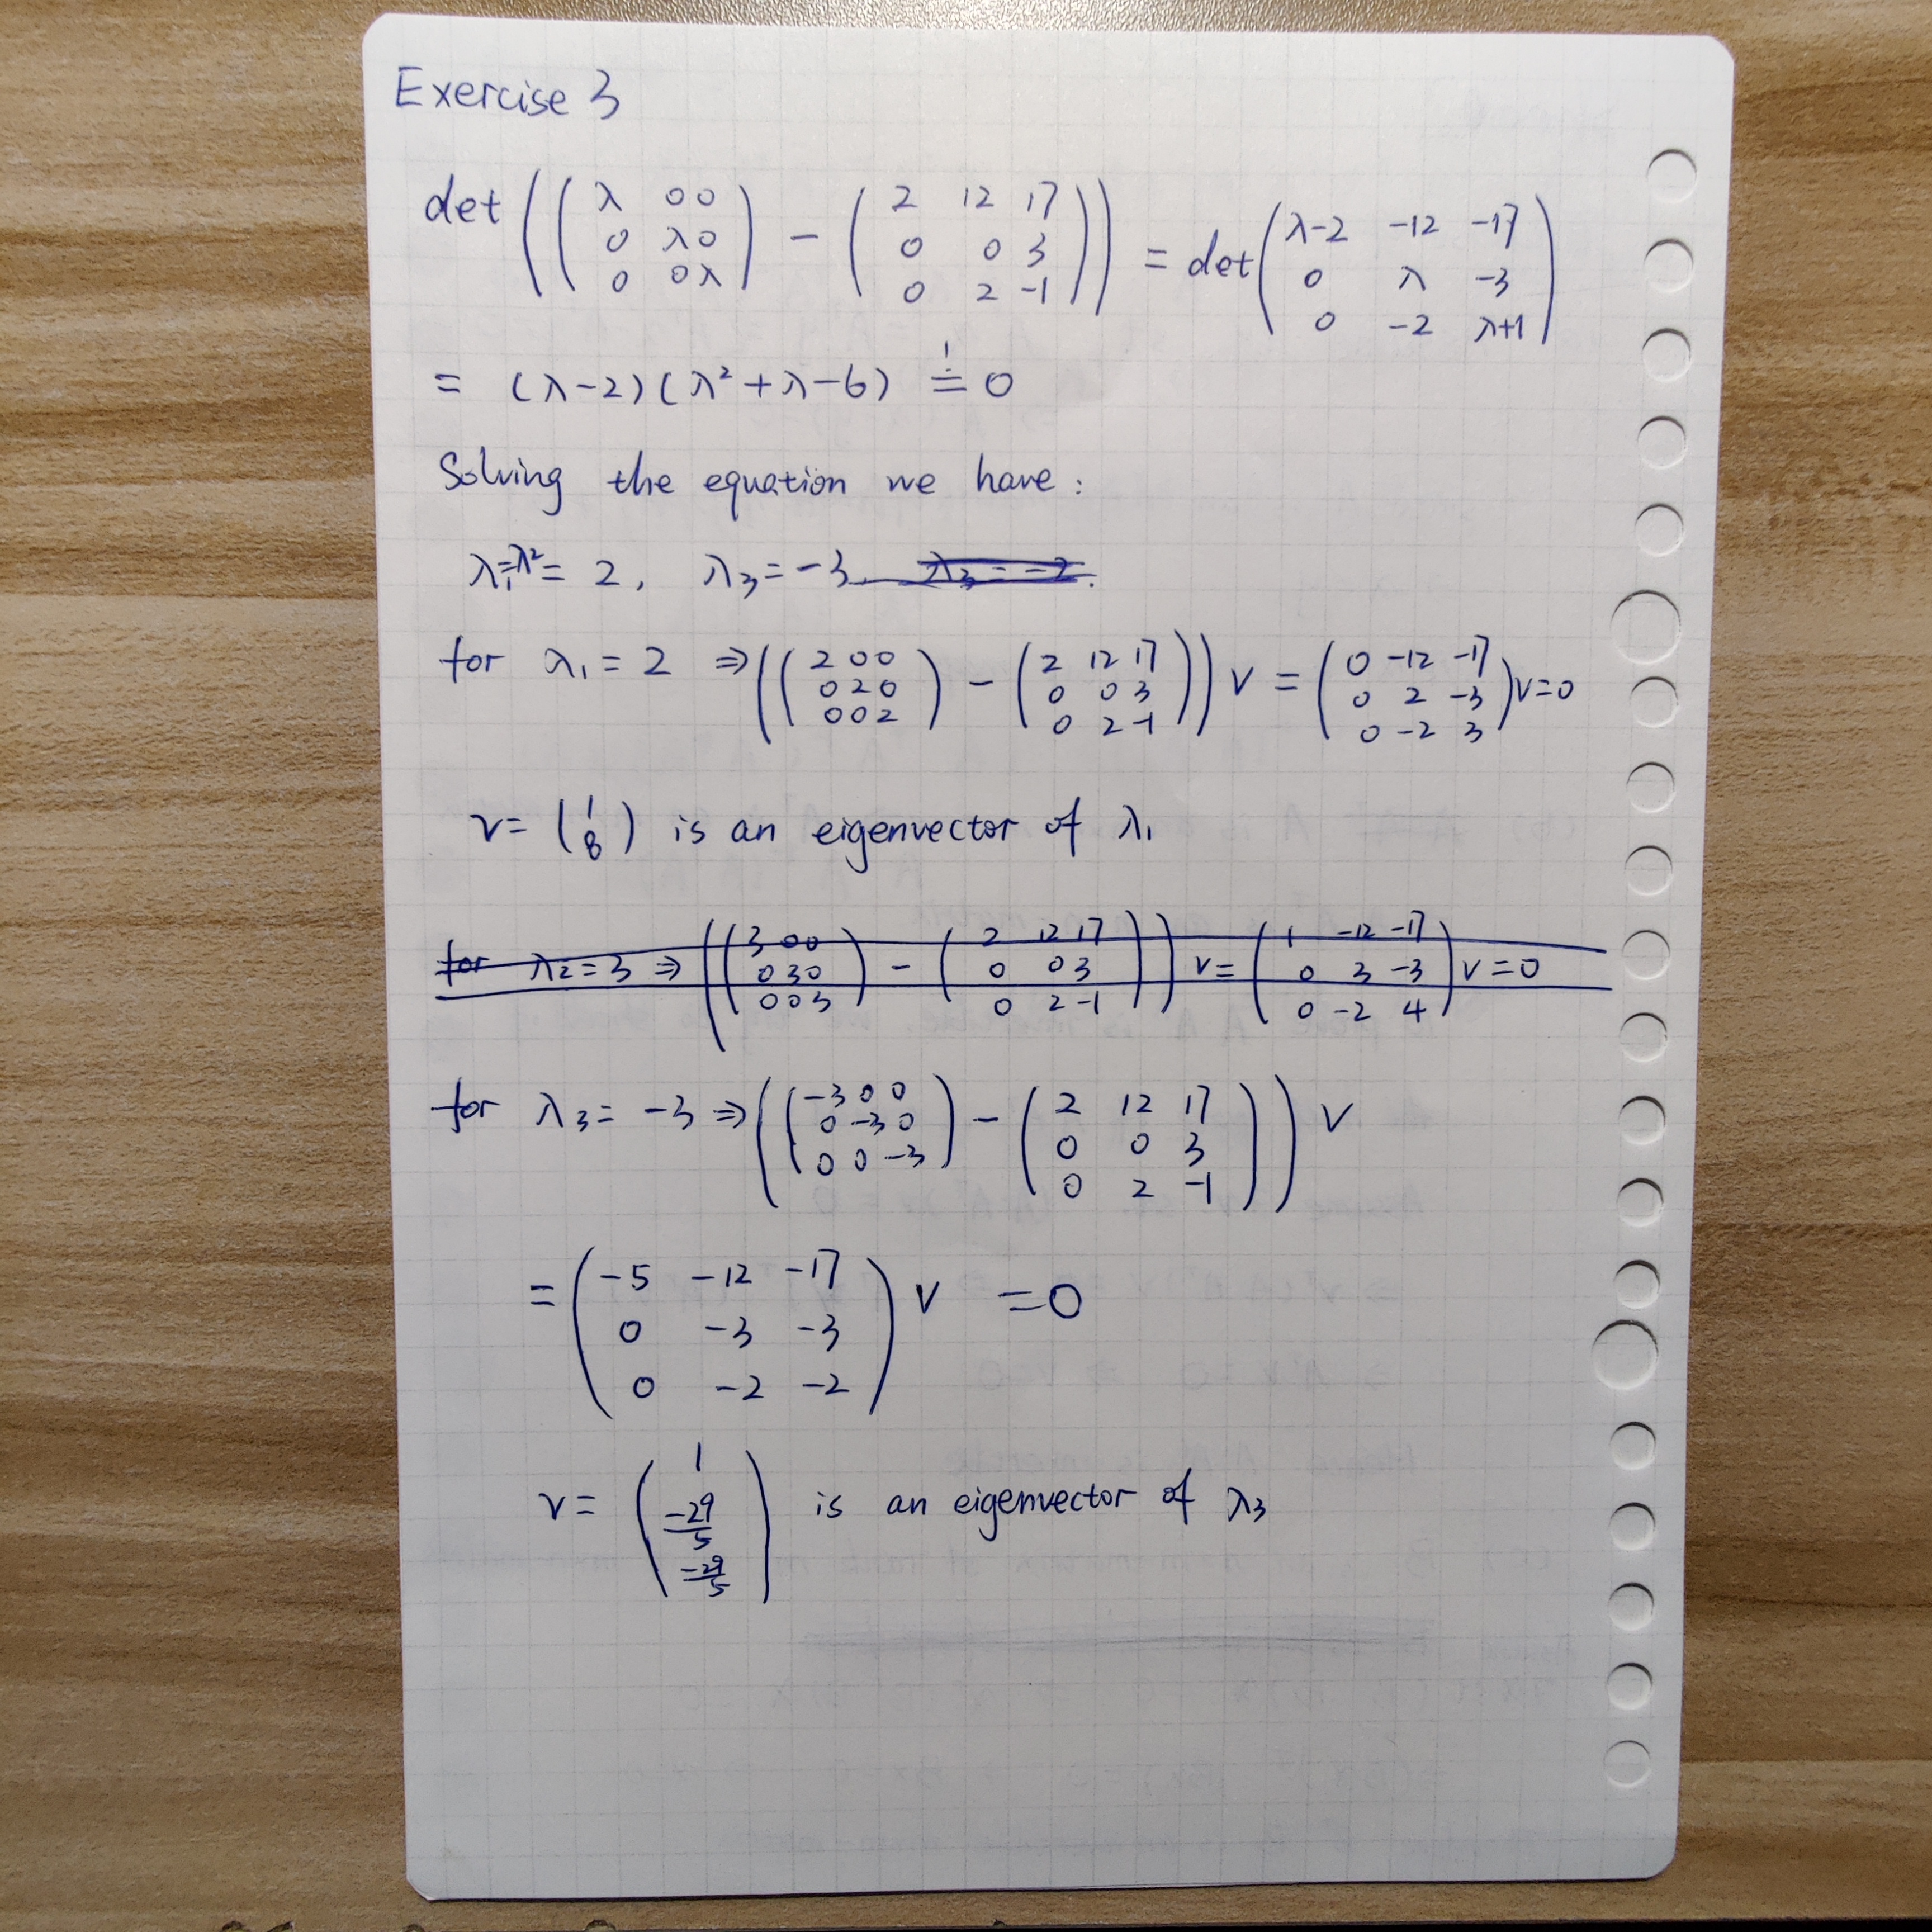 Exercise 3
det ( ( λ 0 0
0 λ 0
0 0 λ ) - ( 2 12 17
0 0 3
0 2 -1 ) ) = det ( λ-2 -12 -17
0 λ -3
0 -2 λ+1 )
= (λ-2)(λ²+λ-6) ≐! 0
Solving the equation we have:
λ₁=λ²= 2, λ₃=-3 λ₃=-2.
for λ₁=2 ⇒ ( ( 2 0 0
0 2 0
0 0 2 ) - ( 2 12 17
0 0 3
0 2 -1 ) ) v = ( 0 -12 -17
0 2 -3
0 -2 3 ) v=0
v= ( 1
0
0 ) is an eigenvector of λ₁
for λ₂=3 ⇒ ( ( 3 0 0
0 3 0
0 0 3 ) - ( 2 12 17
0 0 3
0 2 -1 ) ) v= ( 1 -12 -17
0 3 -3
0 -2 4 ) v=0
for λ₃= -3 ⇒ ( ( -3 0 0
0 -3 0
0 0 -3 ) - ( 2 12 17
0 0 3
0 2 -1 ) ) v
= ( -5 -12 -17
0 -3 -3
0 -2 -2 ) v =0
v= ( 1
-29/5
-29/5 ) is an eigenvector of λ₃